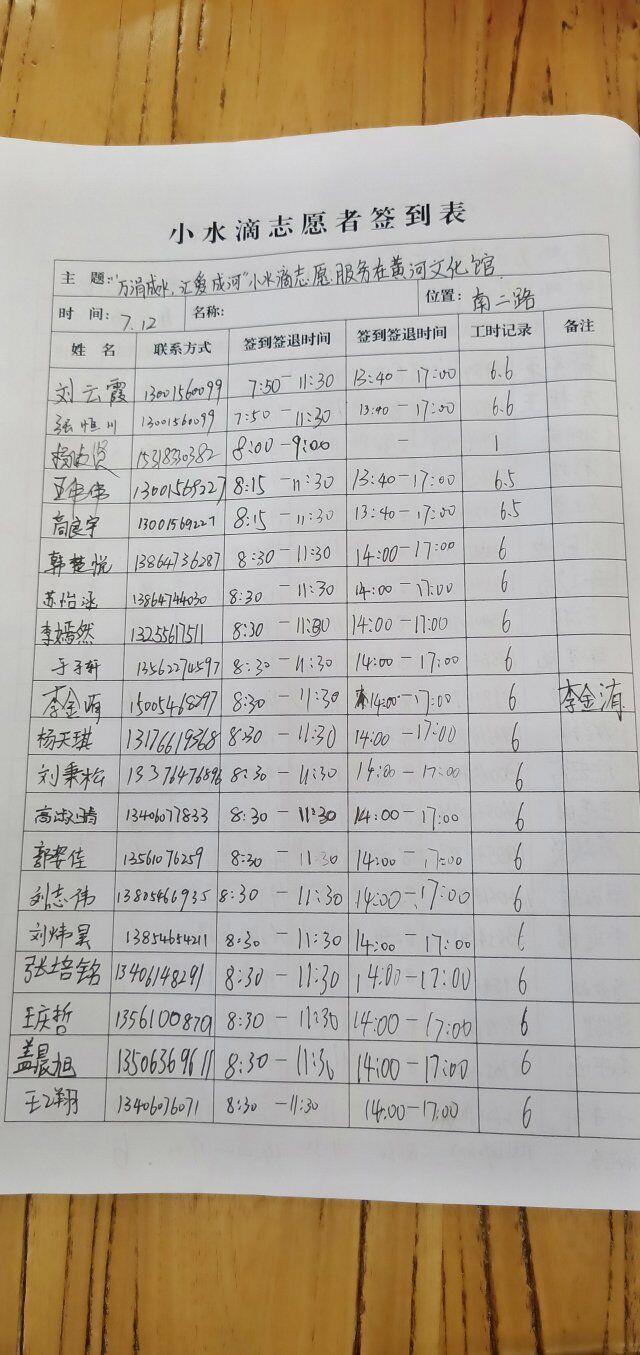 小水滴志愿者签到表
主 题：“万涓成水，汇爱成河”小水滴志愿服务在黄河文化馆
时 间：7.12 名称： 位置：南二路
姓 名 联系方式 签到签退时间 签到签退时间 工时记录 备注
刘云霞 13001560099 7:50-11:30 13:40-17:00 6.6
张恒川 13001560099 7:50-11:30 13:40-17:00 6.6
15318330382 8:00-9:00 - 1
亚伟伟 13001569227 8:15-11:30 13:40-17:00 6.5
高良宇 13001569227 8:15-11:30 13:40-17:00 6.5
韩楚悦 13864736287 8:30-11:30 14:00-17:00 6
苏怡涵 13864744030 8:30-11:30 14:00-17:00 6
李嫣然 13255617511 8:30-11:30 14:00-17:00 6
于子轩 13562274597 8:30-11:30 14:00-17:00 6
李金洧 15005468297 8:30-11:30 14:00-17:00 6 李金洧
杨天琪 13176619368 8:30-11:30 14:00-17:00 6
刘秉松 13376476896 8:30-11:30 14:00-17:00 6
高淑晴 13406077833 8:30-11:30 14:00-17:00 6
郭安佳 13561076259 8:30-11:30 14:00-17:00 6
刘志伟 13805466935 8:30-11:30 14:00-17:00 6
刘炜昊 13854654211 8:30-11:30 14:00-17:00 6
张培铭 13406148291 8:30-11:30 14:00-17:00 6
王庆哲 13561008701 8:30-11:30 14:00-17:00 6
盖晨旭 13506369611 8:30-11:30 14:00-17:00 6
13406076071 8:30-11:30 14:00-17:00 6